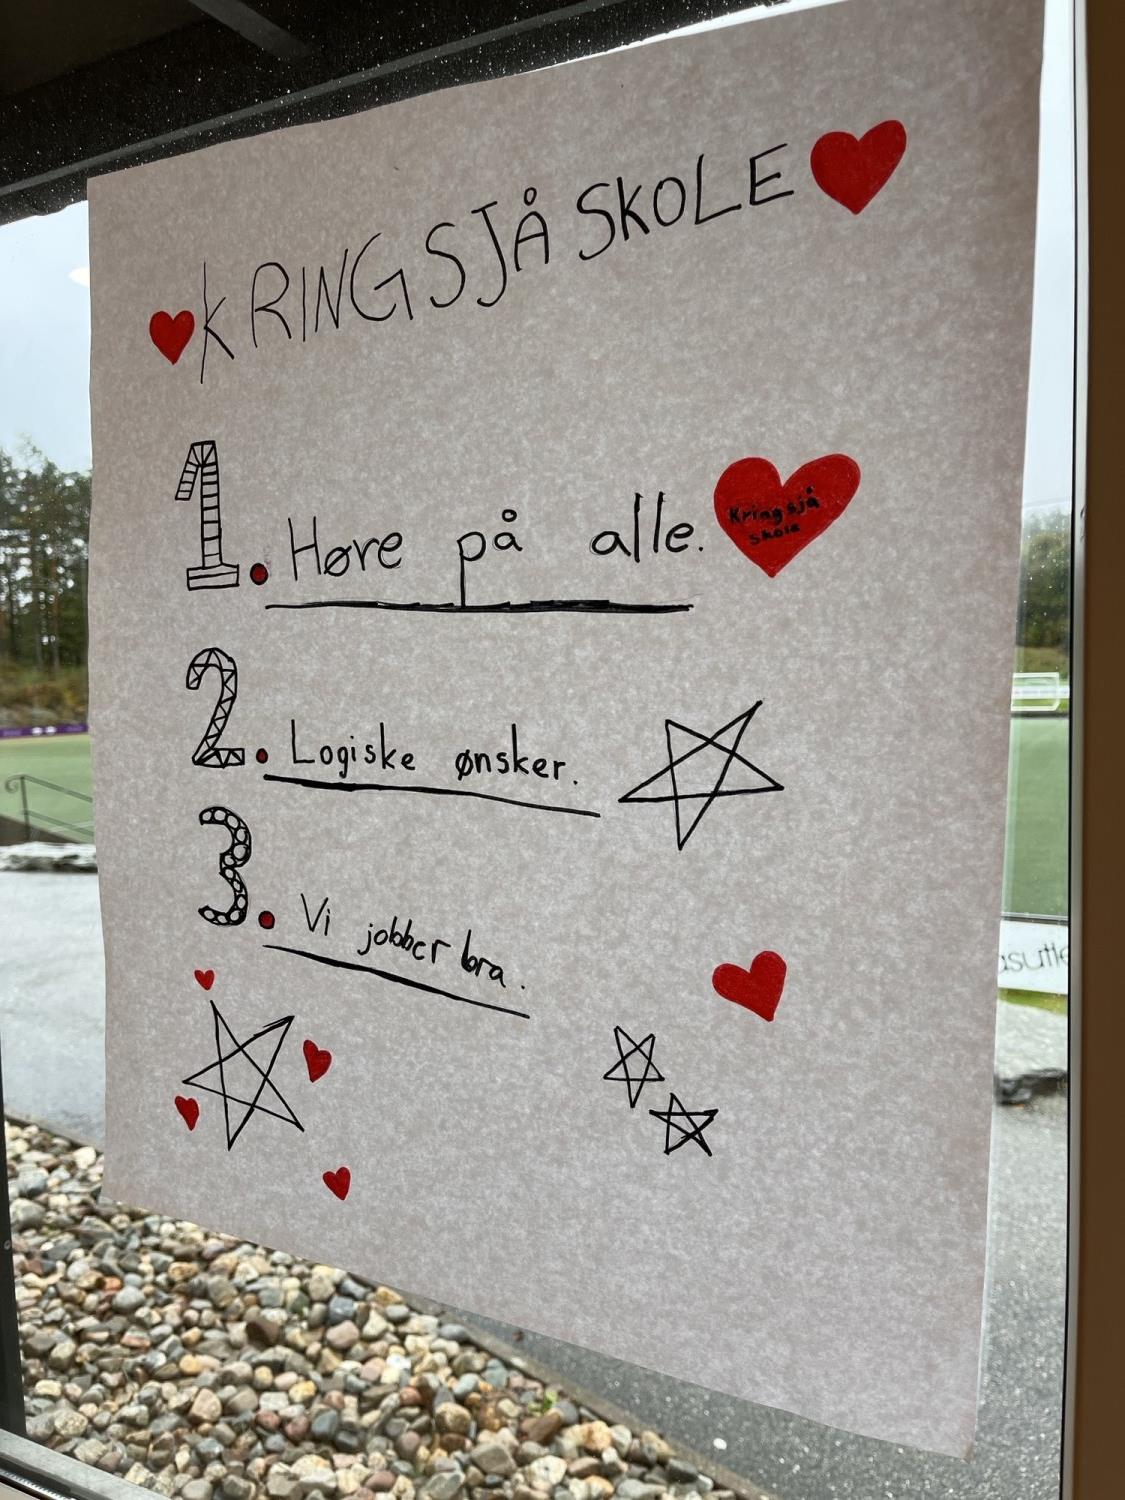 KRINGSJÅ SKOLE
1. Høre på alle.
Kringsjå
skole
2. Logiske ønsker.
3. Vi jobber bra.